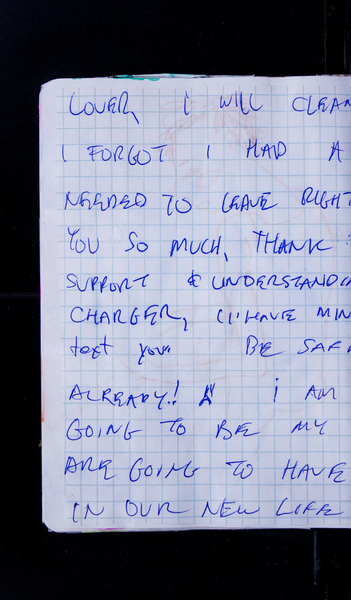 LOVER, I WILL CLEAN
I FORGOT I HAD A
NEEDED TO LEAVE RIGHT
YOU SO MUCH, THANK
SUPPORT & UNDERSTANDI
CHARGER, I'll HAVE MIN
text you. BE SAF
ALREADY!! I AM
GOING TO BE MY
ARE GOING TO HAVE
IN OUR NEW LIFE